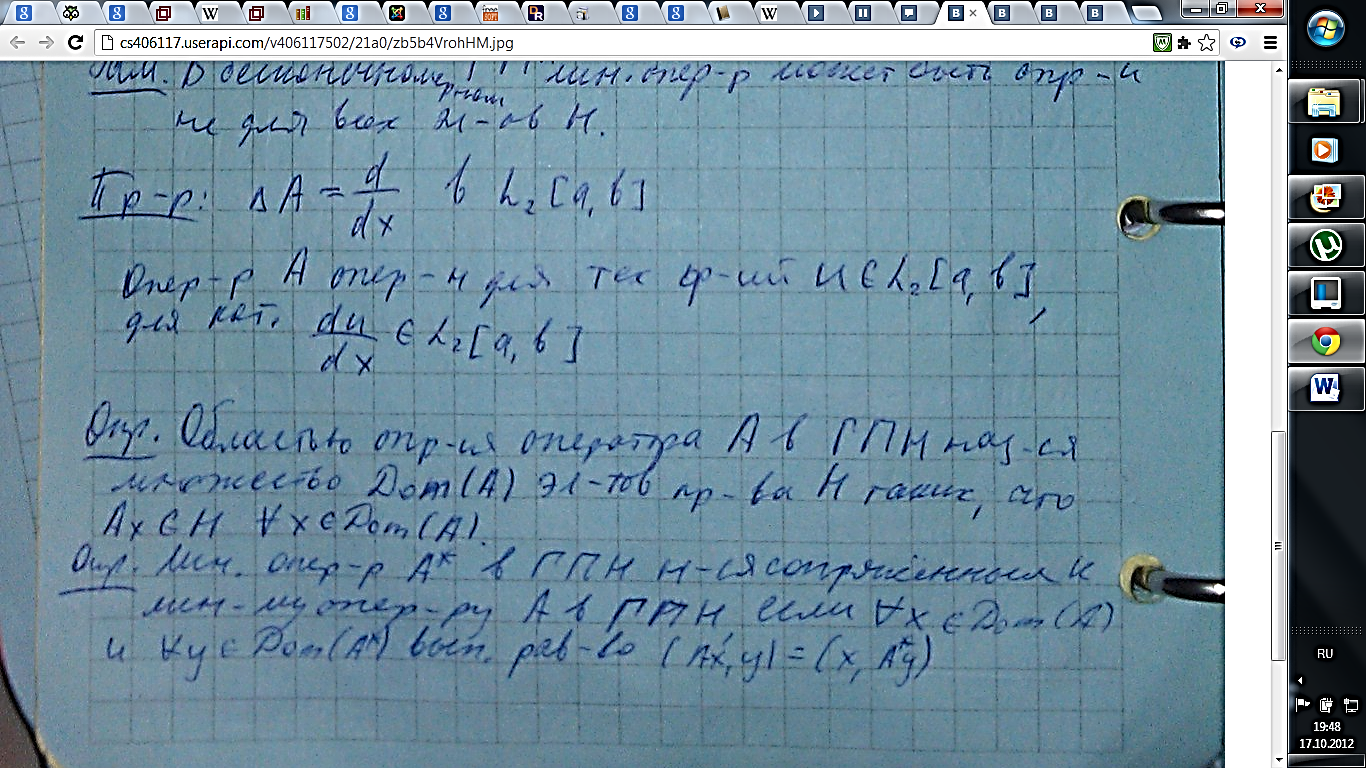 cs406117.userapi.com/v406117502/21a0/zb5b4VrohHM.jpg
Зам. В бесконечномерном ГП лин. опер-р может быть опр-н
не для всех эл-ов H.
Пр-р: ΔA = d/dx в L₂[a,b]
Опер-р A опер-н для тех ф-ий u∈L₂[a,b],
для кот. du/dx ∈ L₂[a,b]
Опр. Областью опр-ия оператора A в ГПH наз-ся
множество Dom(A) эл-тов пр-ва H таких, что
Ax∈H ∀x∈Dom(A).
Опр. Лин. опер-р A* в ГПH н-ся сопряжённым к
лин-му опер-ру A в ГПH если ∀x∈Dom(A)
и ∀y∈Dom(A*) вып. рав-во (Ax,y)=(x,A*y)
RU
19:48
17.10.2012